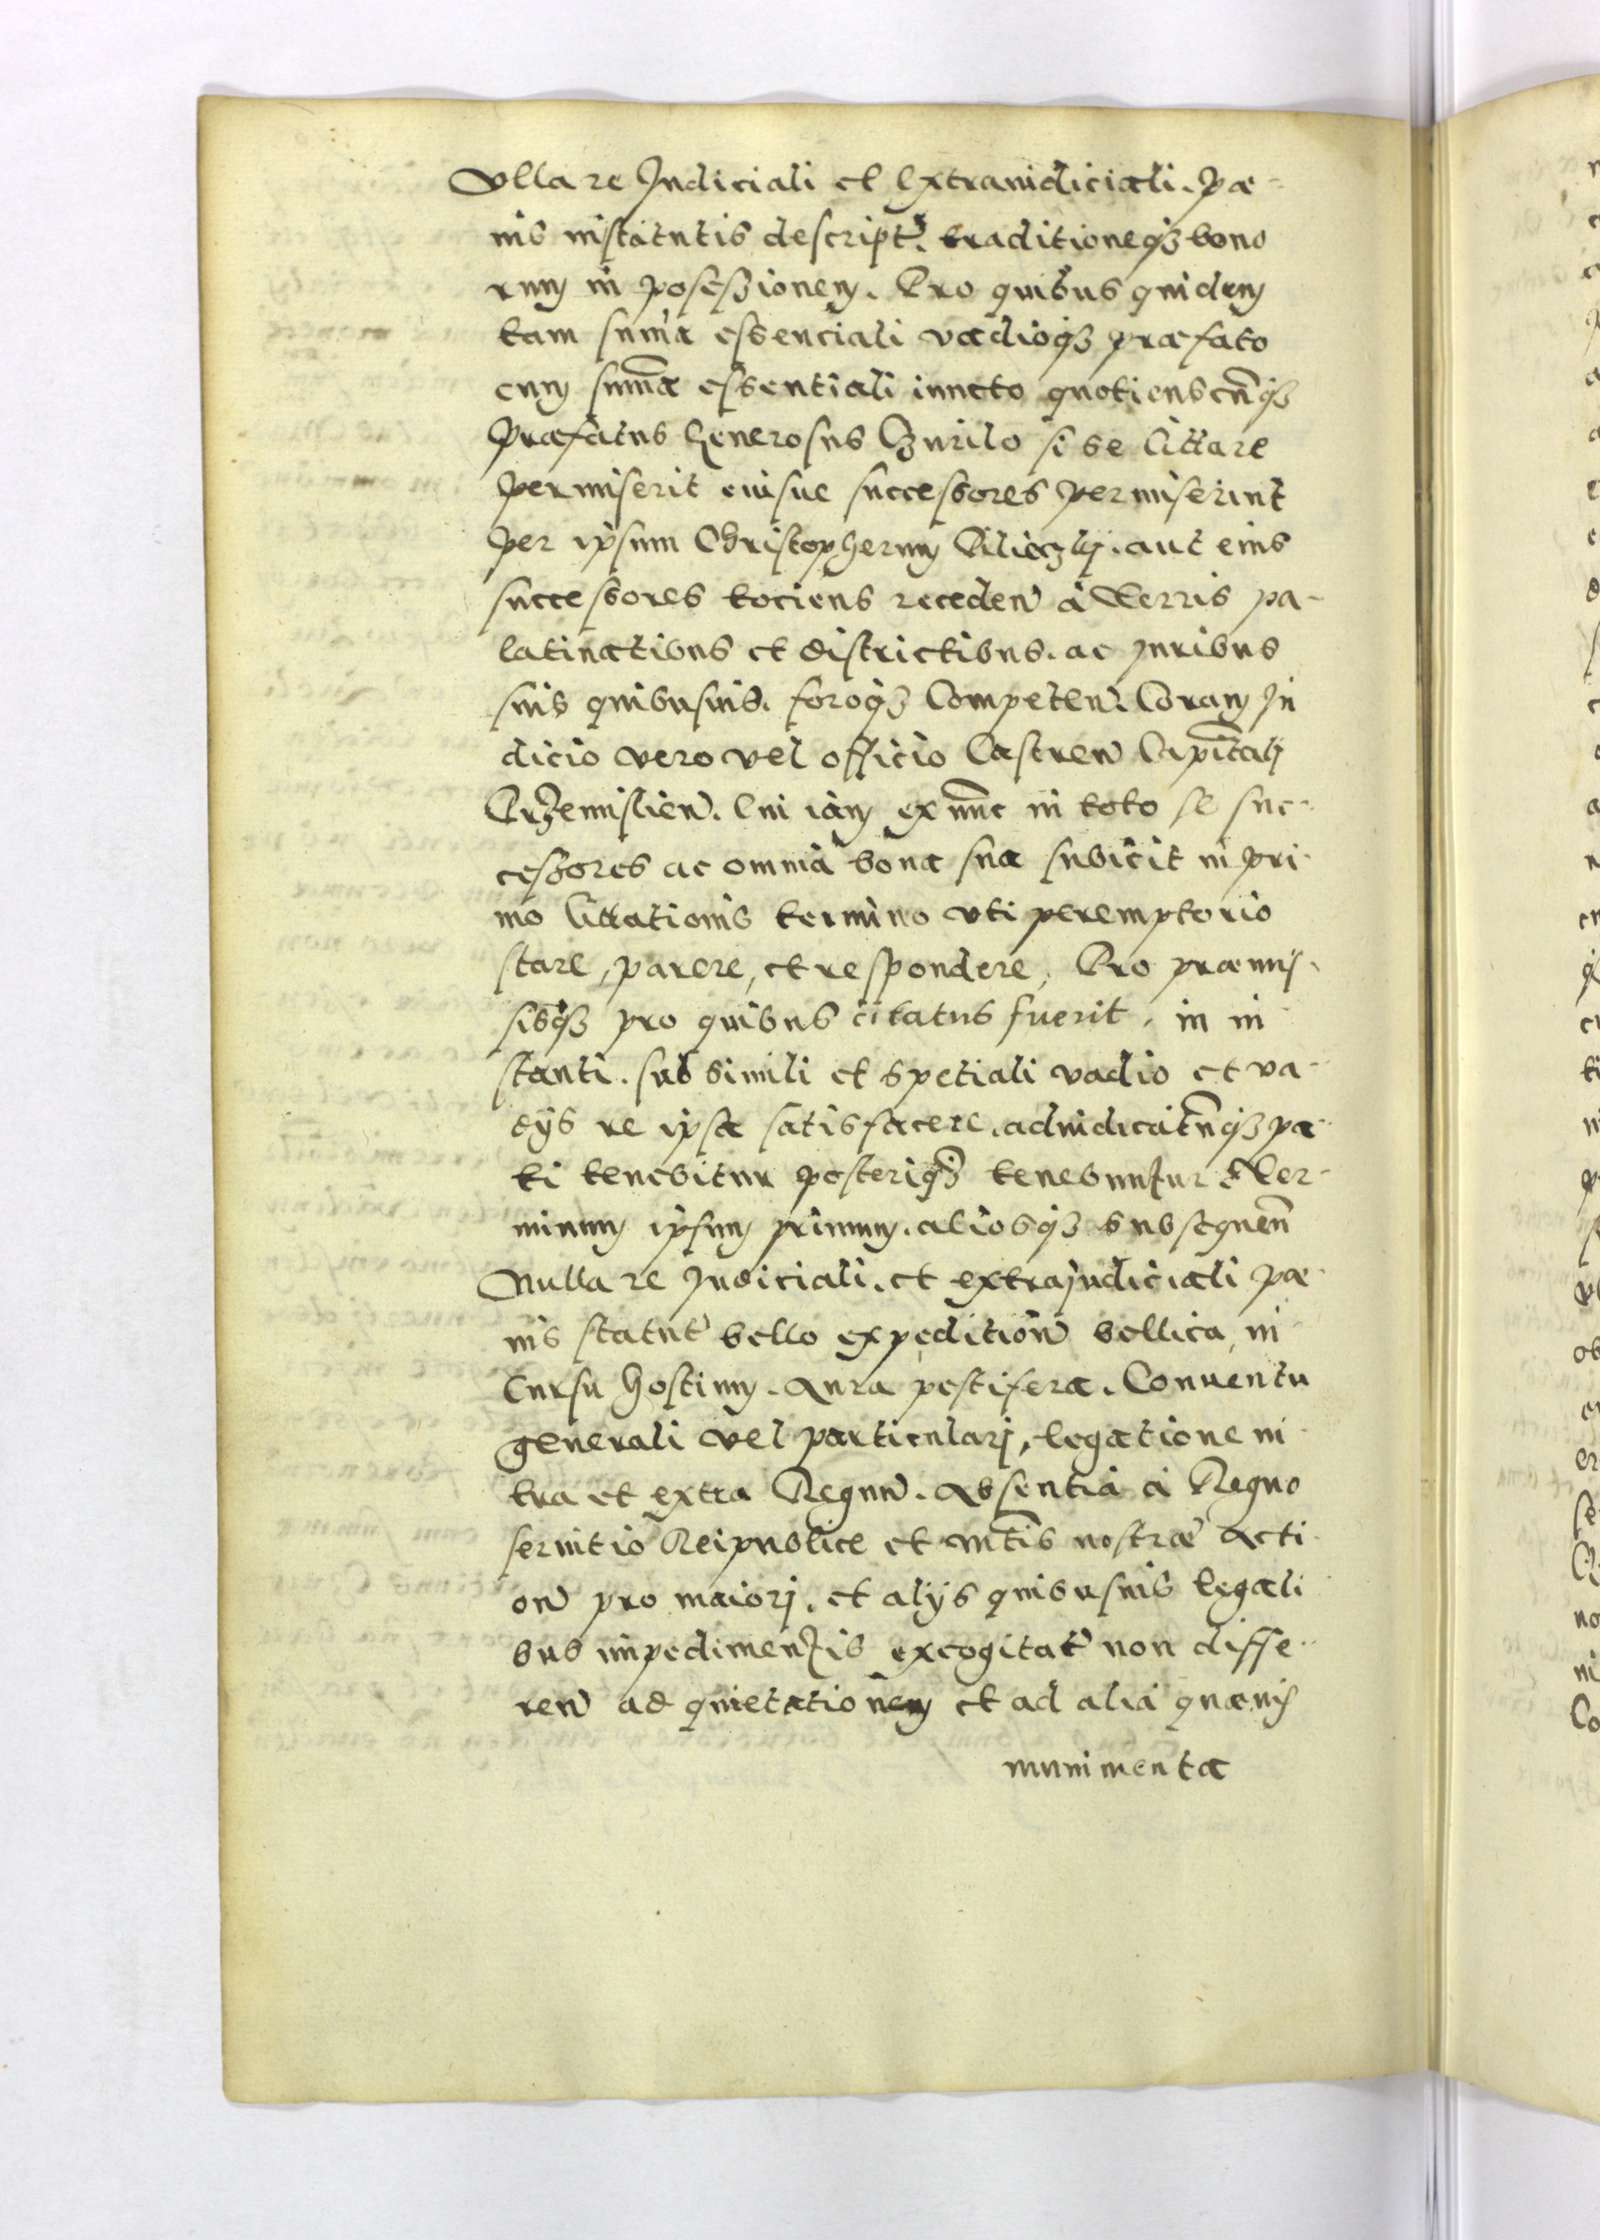 Vlla re Judiciali et Extraiudiciali. pæ-
nis in statutis descript. traditioneq3 bono
rum in posesзionem. Pro quibus quidem
tam summa essenciali vadioq3 præfato
cum summa essentiali iuncto quotienscunq3
præfatus Generosus Czurilo si se Cittare
permiserit eiusue successores permiserint
per ipsum Christopherum aut eius
successores tociens receden a Terris pa-
latinatibus et districtibus. ac juribus
suis quibusuis. foroq3 Competen. Coram Ju
dicio vero vel officio Castren Capitali
Przemislien. Cui iam ex nunc in toto se suc-
cesзores ac omnia bona sua subicit in pri-
mo Cittationis termino vti peremptorio
stare, parere, et respondere, Pro præmis-
sisq3 pro quibus citatus fuerit. in in
stanti. sub simili et spetiali vadio et va-
dys re ipsa satisfacere. adiudicatumq3 pa-
ti tenebitur posteriq3 tenebuntur Ter-
minum ipsum primum. aliosq3 subsequen
Nulla re Judiciali. et extrajudiciali pæ-
nis statut bello expedition bellica, in
Cursu hostium. Aura pestifera. Conuentu
generali vel particularj, legatione in
tra et extra Regnum. Absentia a Regno
seruitio Reipublice et mtis nostræ Acti
on pro maiorj. et alys quibusuis legali
bus impedimentis excogitat non diffe-
ren ad quietationem et ad alia quæuis
munimenta